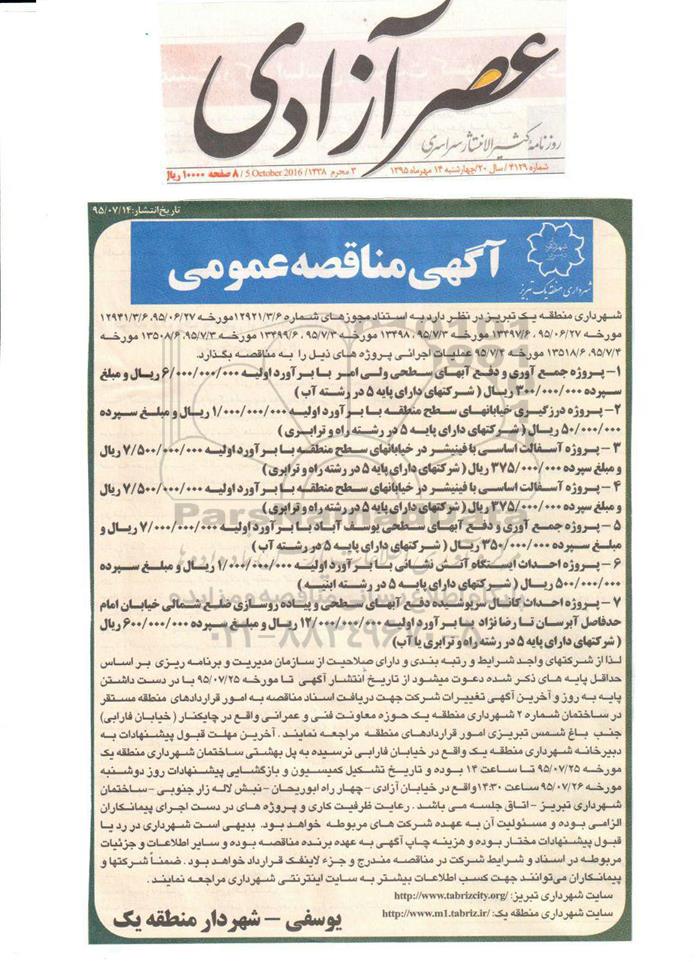 عصر آزادی
روزنامهٔ کثیرالانتشار سراسری
شماره ۴۱۲۹/ سال ۲۰/چهارشنبه ۱۴ مهرماه ۱۳۹۵ ۳ محرم ۱۴۳۸/ 5 October 2016/ ۸ صفحه ۱۰۰۰۰ ریال
تاریخ انتشار: ۹۵/۰۷/۱۴
آگهی مناقصه عمومی
شهرداری منطقه یک تبریز
شهرداری منطقه یک تبریز در نظر دارد به استناد مجوزهای شماره ۱۲۹۲۱/۳/۶مورخه ۹۵/۰۶/۲۷، ۱۲۹۴۱/۳/۶
مورخه ۹۵/۰۶/۲۷ ، ۱۳۴۹۷/۶ مورخه ۹۵/۷/۳، ۱۳۴۹۸ مورخه ۹۵/۷/۳، ۱۳۴۹۹/۶ مورخه ۹۵/۷/۳، ۱۳۵۰۸/۶ مورخه
۹۵/۷/۴، ۱۳۵۱۸/۶ مورخه ۹۵/۷/۲ عملیات اجرائی پروژه های ذیل را به مناقصه بگذارد.
۱- پروژه جمع آوری و دفع آبهای سطحی ولی امر با برآورد اولیه ۶/۰۰۰/۰۰۰/۰۰۰ ریال و مبلغ
سپرده ۳۰۰/۰۰۰/۰۰۰ ریال ( شرکتهای دارای پایه ۵ در رشته آب )
۲- پروژه درزگیری خیابانهای سطح منطقه با برآورد اولیه ۱/۰۰۰/۰۰۰/۰۰۰ ریال و مبلغ سپرده
۵۰/۰۰۰/۰۰۰ ریال ( شرکتهای دارای پایه ۵ در رشته راه و ترابری )
۳ - پروژه آسفالت اساسی با فینیشر در خیابانهای سطح منطقه با برآورد اولیه ۷/۵۰۰/۰۰۰/۰۰۰ ریال
و مبلغ سپرده ۳۷۵/۰۰۰/۰۰۰ ریال (شرکتهای دارای پایه ۵ در رشته راه و ترابری)
۴ - پروژه آسفالت اساسی با فینیشر در خیابانهای سطح منطقه با برآورد اولیه ۷/۵۰۰/۰۰۰/۰۰۰ ریال
و مبلغ سپرده ۳۷۵/۰۰۰/۰۰۰ ریال (شرکتهای دارای پایه ۵ در رشته راه و ترابری)
۵ - پروژه جمع آوری و دفع آبهای سطحی یوسف آباد با برآورد اولیه ۷/۰۰۰/۰۰۰/۰۰۰ ریال و
مبلغ سپرده ۳۵۰/۰۰۰/۰۰۰ ریال ( شرکتهای دارای پایه ۵ در رشته آب )
۶ - پروژه احداث ایستگاه آتش نشانی با برآورد اولیه ۱/۰۰۰/۰۰۰/۰۰۰ ریال و مبلغ سپرده
۵۰۰/۰۰۰/۰۰۰ ریال ( شرکتهای دارای پایه ۵ در رشته ابنیه )
۷ - پروژه احداث کانال سرپوشیده دفع آبهای سطحی و پیاده روسازی ضلع شمالی خیابان امام
حدفاصل آبرسان تا رضا نژاد با برآورد اولیه ۱۲/۰۰۰/۰۰۰/۰۰۰ ریال و مبلغ سپرده ۶۰۰/۰۰۰/۰۰۰ ریال
( شرکتهای دارای پایه ۵ در رشته راه و ترابری یا آب)
لذا از شرکتهای واجد شرایط و رتبه بندی و دارای صلاحیت از سازمان مدیریت و برنامه ریزی بر اساس
حداقل پایه های ذکر شده دعوت میشود از تاریخ انتشار آگهی تا مورخه ۹۵/۰۷/۲۵ با در دست داشتن
پایه به روز و آخرین آگهی تغییرات شرکت جهت دریافت اسناد مناقصه به امور قراردادهای منطقه مستقر
در ساختمان شماره ۲ شهرداری منطقه یک حوزه معاونت فنی و عمرانی واقع در چایکنار ( خیابان فارابی)
جنب باغ شمس تبریزی امور قراردادهای منطقه مراجعه نمایند . آخرین مهلت قبول پیشنهادات به
دبیرخانه شهرداری منطقه یک واقع در خیابان فارابی نرسیده به پل بهشتی ساختمان شهرداری منطقه یک
مورخه ۹۵/۰۷/۲۵ تا ساعت ۱۴ بوده و تاریخ تشکیل کمیسیون و بازگشایی پیشنهادات روز دوشنبه
مورخه ۹۵/۰۷/۲۶ ساعت ۱۴:۳۰واقع در خیابان آزادی - چهار راه ابوریحان - نبش لاله زار جنوبی - ساختمان
شهرداری تبریز - اتاق جلسه می باشد . رعایت ظرفیت کاری و پروژه های در دست اجرای پیمانکاران
الزامی بوده و مسئولیت آن به عهده شرکت های مربوطه خواهد بود. بدیهی است شهرداری در رد یا
قبول پیشنهادات مختار بوده و هزینه چاپ آگهی به عهده برنده مناقصه بوده و سایر اطلاعات و جزئیات
مربوطه در اسناد و شرایط شرکت در مناقصه مندرج و جزء لاینفک قرارداد خواهد بود . ضمناً شرکتها و
پیمانکاران می‌توانند جهت کسب اطلاعات بیشتر به سایت اینترنتی شهرداری مراجعه نمایند .
سایت شهرداری تبریز: http://www.tabrizcity.org/
سایت شهرداری منطقه یک: http://www.m1.tabriz.ir/
یوسفی - شهردار منطقه یک
پایگاه اطلاع رسانی مناقصه و مزایده
۰۲۱-۸۸۳۴۹۶۷۰-۵